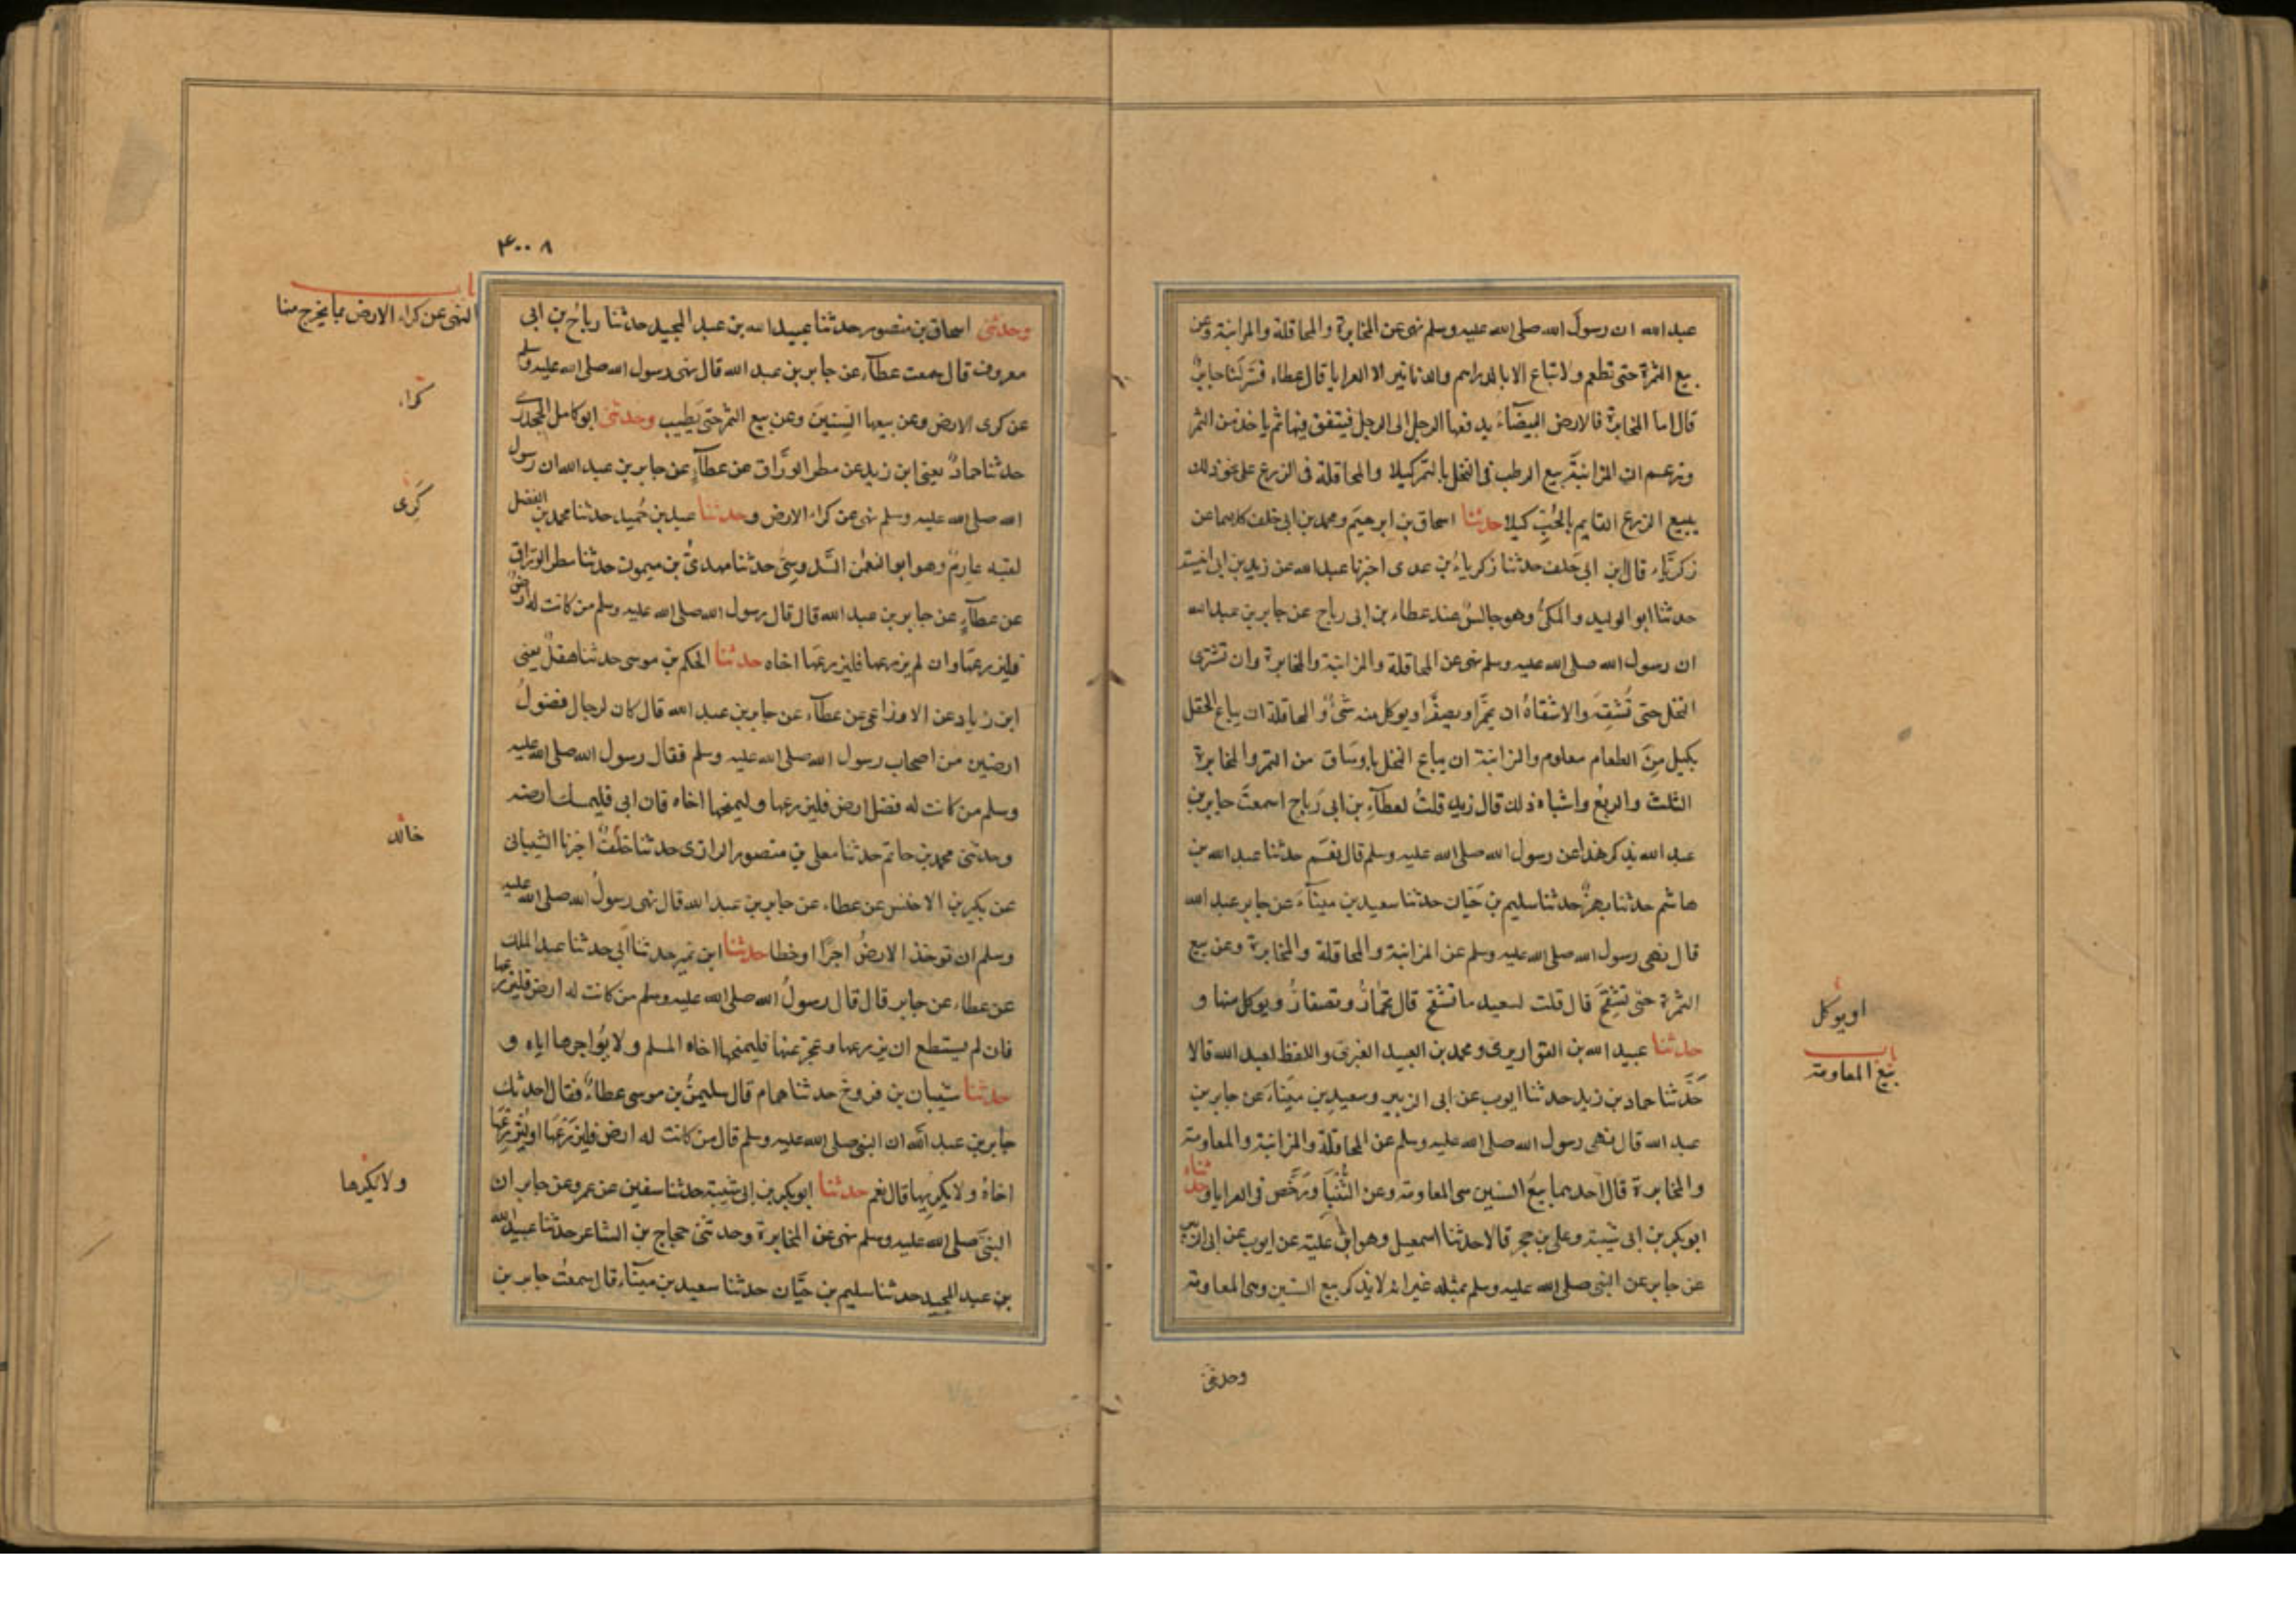 عبد الله ان رسول الله صلى الله عليه وسلم نهى عن المخابرة والمحاقلة والمزابنة وعن
بيع الثمرة حتى تطعم ولا تباع الا بالدراهم والدنانير الا العرايا قال عطاء فسر لنا جابر
قال اما المخابرة فالارض البيضاء يدفعها الرجل الى الرجل فينفق فيها ثم ياخذ من الثمر
وزعم ان المزابنة بيع الرطب في النخل بالتمر كيلا والمحاقلة في الزرع على نحو ذلك
يبيع الزرع القايم بالحب كيلا حدثنا اسحاق بن ابرهيم ومحمد بن ابي خلف كلاهما عن
زكرياء قال ابن ابي خلف حدثنا زكرياء بن عدى اخبرنا عبيد الله عن زيد بن ابي انيسة
حدثنا ابو الوليد والمكى وهو جالس عند عطاء بن ابى رباح عن جابر بن عبد الله
ان رسول الله صلى الله عليه وسلم نهى عن المحاقلة والمزابنة والمخابرة وان تشترى
النخل حتى تشقه والاشقاه ان يحمر او يصفر او يوكل منه شىء والمحاقلة ان يباع الحقل
بكيل من الطعام معلوم والمزابنة ان يباع النخل باوساق من التمر والمخابرة
الثلث والربع واشباه ذلك قال زيد قلت لعطاء بن ابى رباح اسمعت جابر بن
عبد الله يذكر هذا عن رسول الله صلى الله عليه وسلم قال نعم حدثنا عبد الله بن
هاشم حدثنا بهز حدثنا سليم بن حيان حدثنا سعيد بن ميناء عن جابر عبد الله
قال نهى رسول الله صلى الله عليه وسلم عن المزابنة والمحاقلة والمخابرة وعن بيع
الثمرة حتى تشقح قال قلت لسعيد ما تشقح قال تحمار وتصفار ويوكل منها و
حدثنا عبيد الله بن القواريرى ومحمد بن العبيد الغبرى واللفظ لعبيد الله قالا
حدثنا حماد بن زيد حدثنا ايوب عن ابى الزبير وسعيد بن ميناء عن جابر بن
عبد الله قال نهى رسول الله صلى الله عليه وسلم عن المحاقلة والمزابنة والمعاومة
والمخابرة قال احدهما بيع السنين هى المعاومة وعن الثنيا ورخص فى العرايا وحدثناه
ابو بكر بن ابى شيبة وعلى بن حجر قالا حدثنا اسمعيل وهو ابن علية عن ايوب عن ابى الزبير
عن جابر عن النبى صلى الله عليه وسلم بمثله غير انه لا يذكر بيع السنين وهى المعاومة
وحدثنى
او يوكل
باب
بيع المعاومة
٤٠٠٨
وحدثنى اسحاق بن منصور حدثنا عبيد الله بن عبد المجيد حدثنا رباح بن ابى
معروف قال سمعت عطآء عن جابر بن عبد الله قال نهى رسول الله صلى الله عليه وسلم
عن كرى الارض وعن بيعها السنين وعن بيع الثمر حتى يطيب وحدثنى ابو كامل الجحدرى
حدثنا حماد يعنى ابن زيد عن مطر الوراق عن عطآء عن جابر بن عبد الله ان رسول
الله صلى الله عليه وسلم نهى عن كراء الارض وحدثنا عبد بن حميد حدثنا محمد بن الفضل
لقبه عارم وهو ابو النعمن السدوسى حدثنا مهدى بن ميمون حدثنا مطر الوراق
عن عطآء عن جابر بن عبد الله قال قال رسول الله صلى الله عليه وسلم من كانت له ارض
فليزرعها وان لم يزرعها فليزرعها اخاه حدثنا الحكم بن موسى حدثنا هقل يعنى
ابن زياد عن الاوزاعى عن عطآء عن جابر بن عبد الله قال كان لرجال فضول
ارضين من اصحاب رسول الله صلى الله عليه وسلم فقال رسول الله صلى الله عليه
وسلم من كانت له فضل ارض فليزرعها او ليمنحها اخاه فان ابى فليمسك ارضه
وحدثنى محمد بن حاتم حدثنا معلى بن منصور الرازى حدثنا خلف اخبرنا الشيبانى
عن بكير بن الاخنس عن عطاء عن جابر بن عبد الله قال نهى رسول الله صلى الله عليه
وسلم ان توخذ الارض اجرا او خطا حدثنا ابن نمير حدثنا ابى حدثنا عبد الملك
عن عطاء عن جابر قال قال رسول الله صلى الله عليه وسلم من كانت له ارض فليزرعها
فان لم يستطع ان يزرعها وعجز عنها فليمنحها اخاه المسلم ولا يؤاجرها اياه و
حدثنا شيبان بن فروخ حدثنا همام قال سليمن بن موسى عطاء فقال احدثك
جابر بن عبد الله ان النبى صلى الله عليه وسلم قال من كانت له ارض فليزرعها او ليزرعها
اخاه ولا يكريها قال نعم حدثنا ابو بكر بن ابى شيبة حدثنا سفين عن عمرو عن جابر ان
النبى صلى الله عليه وسلم نهى عن المخابرة وحدثنى حجاج بن الشاعر حدثنا عبيد الله
بن عبد المجيد حدثنا سليم بن حيان حدثنا سعيد بن ميناء قال سمعت جابر بن
باب
النهى عن كراء الارض بما يخرج منها
كراء
كرى
خالد
ولا يكرها